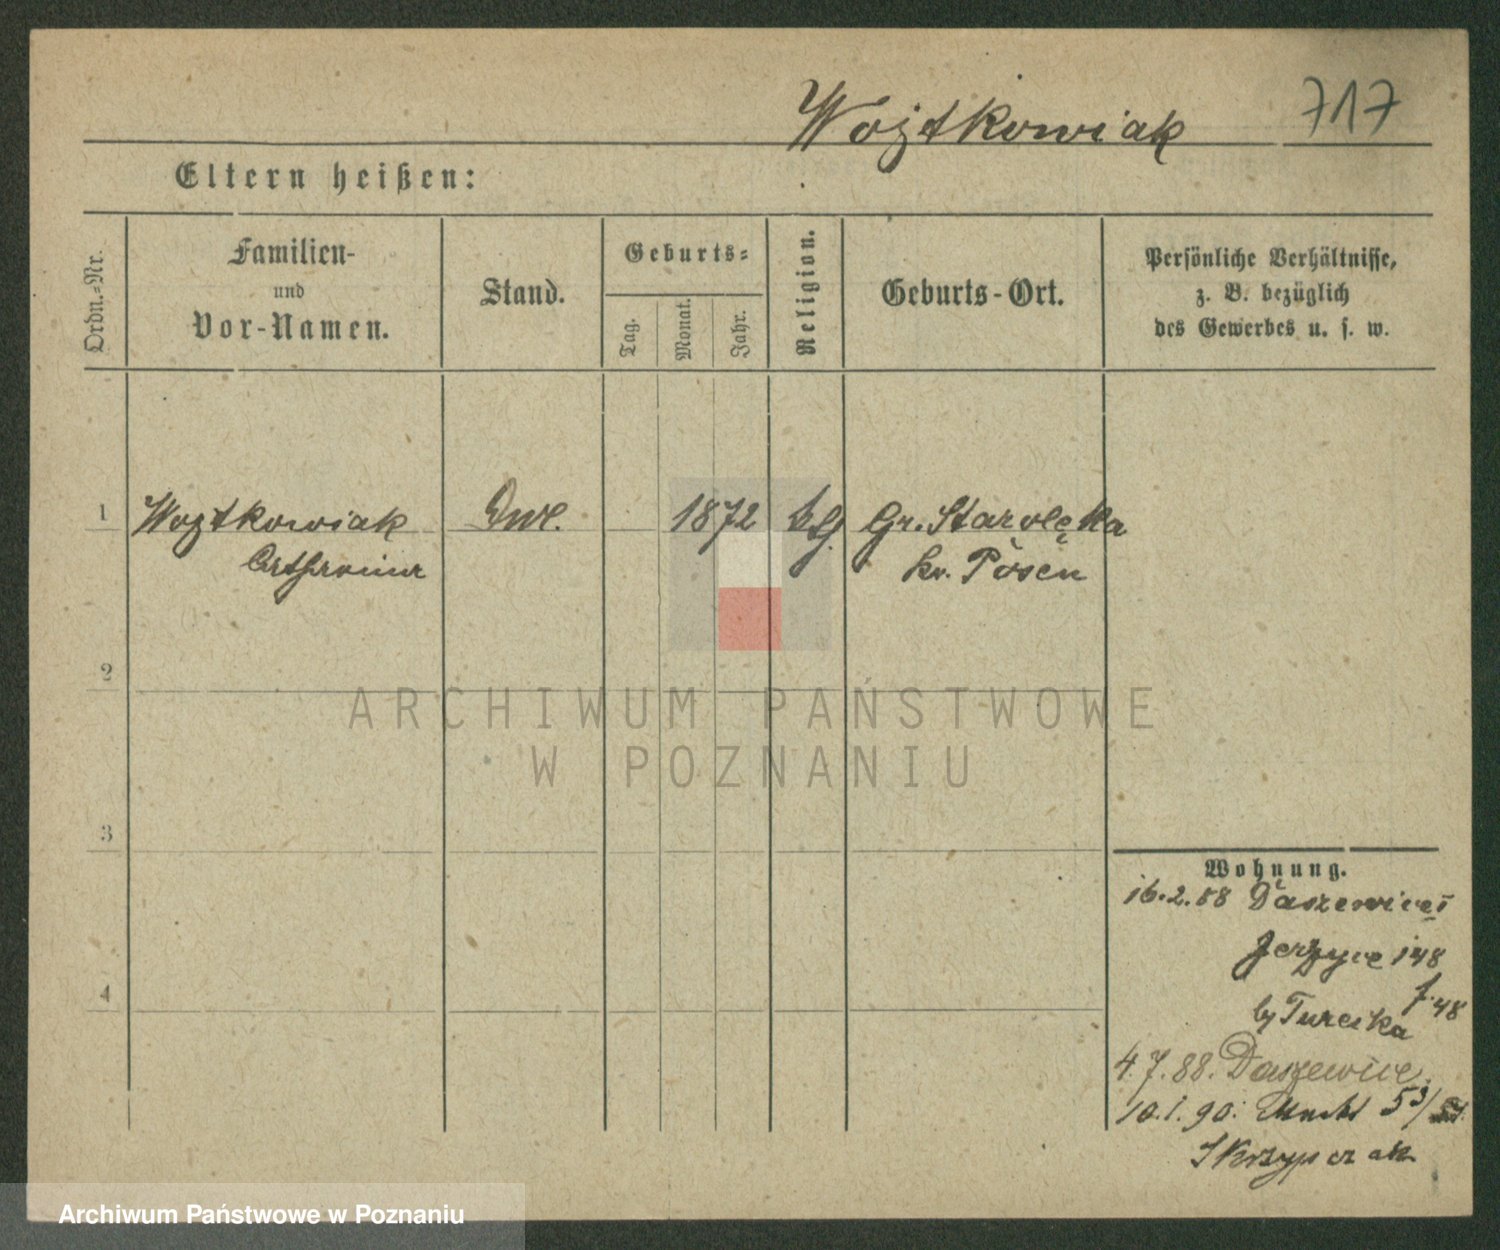 Wojtkowiak 717
Eltern heißen:
Ordn.-Nr.
Familien-
und
Vor-Namen.
Stand.
Geburts-
Tag.
Monat.
Jahr.
Religion.
Geburts-Ort.
Persönliche Verhältnisse,
z. B. bezüglich
des Gewerbes u. s. w.
1 Wojtkowiak 1872 Gr. Starolęka
Kr. Posen
2
ARCHIWUM PAŃSTWOWE
W POZNANIU
3
4
Wohnung.
16.2.88 Daszewice
Jerzyce 148
by Turecka f. 48
4.7.88. Daszewice
10.1.90. 53/
Skrzypczak
Archiwum Państwowe w Poznaniu